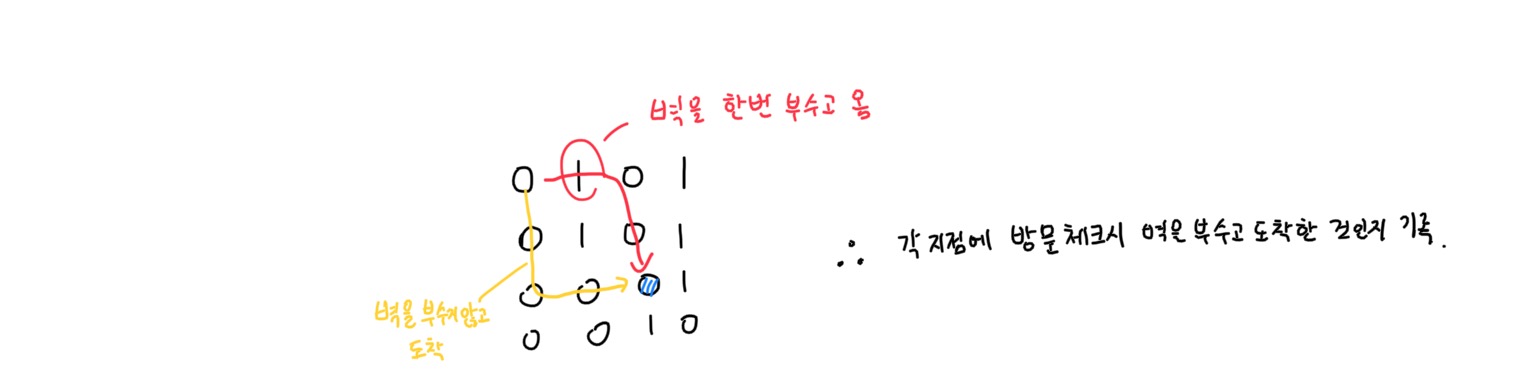 벽을 한번 부수고 옴
0 1 0 1
0 1 0 1
0 0 0 1
0 0 1 0
벽을 부수지않고
도착
∴ 각 지점에 방문체크시 벽을 부수고 도착한 것인지 기록.